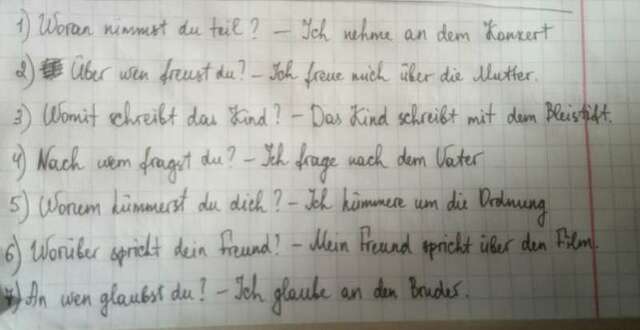 1) Woran nimmst du teil? – Ich nehme an dem Konzert
2) Über wen freust du? – Ich freue mich über die Mutter.
3) Womit schreibt das Kind? – Das Kind schreibt mit dem Bleistift.
4) Nach wem fragst du? – Ich frage nach dem Vater
5) Worum kümmerst du dich? – Ich kümmere um die Ordnung
6) Worüber spricht dein Freund? – Mein Freund spricht über den Film.
7) An wen glaubst du? – Ich glaube an den Bruder.